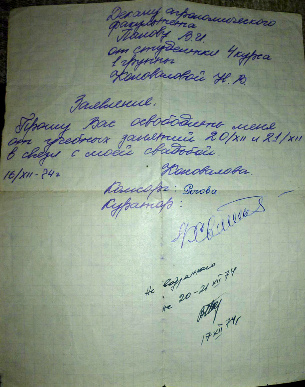 Декану агрономического
факультета
Попову В.И.
от студентки 4 курса
1 группы
Коноваловой Н.Ю.
Заявление.
Прошу Вас освободить меня
от учебных занятий 20/XII и 21/XII
в связи с моей свадьбой
16/XII-74г Коновалова
Комсорг: Рогова
Куратор:
на 20-21 XII 74
17 XII 74г